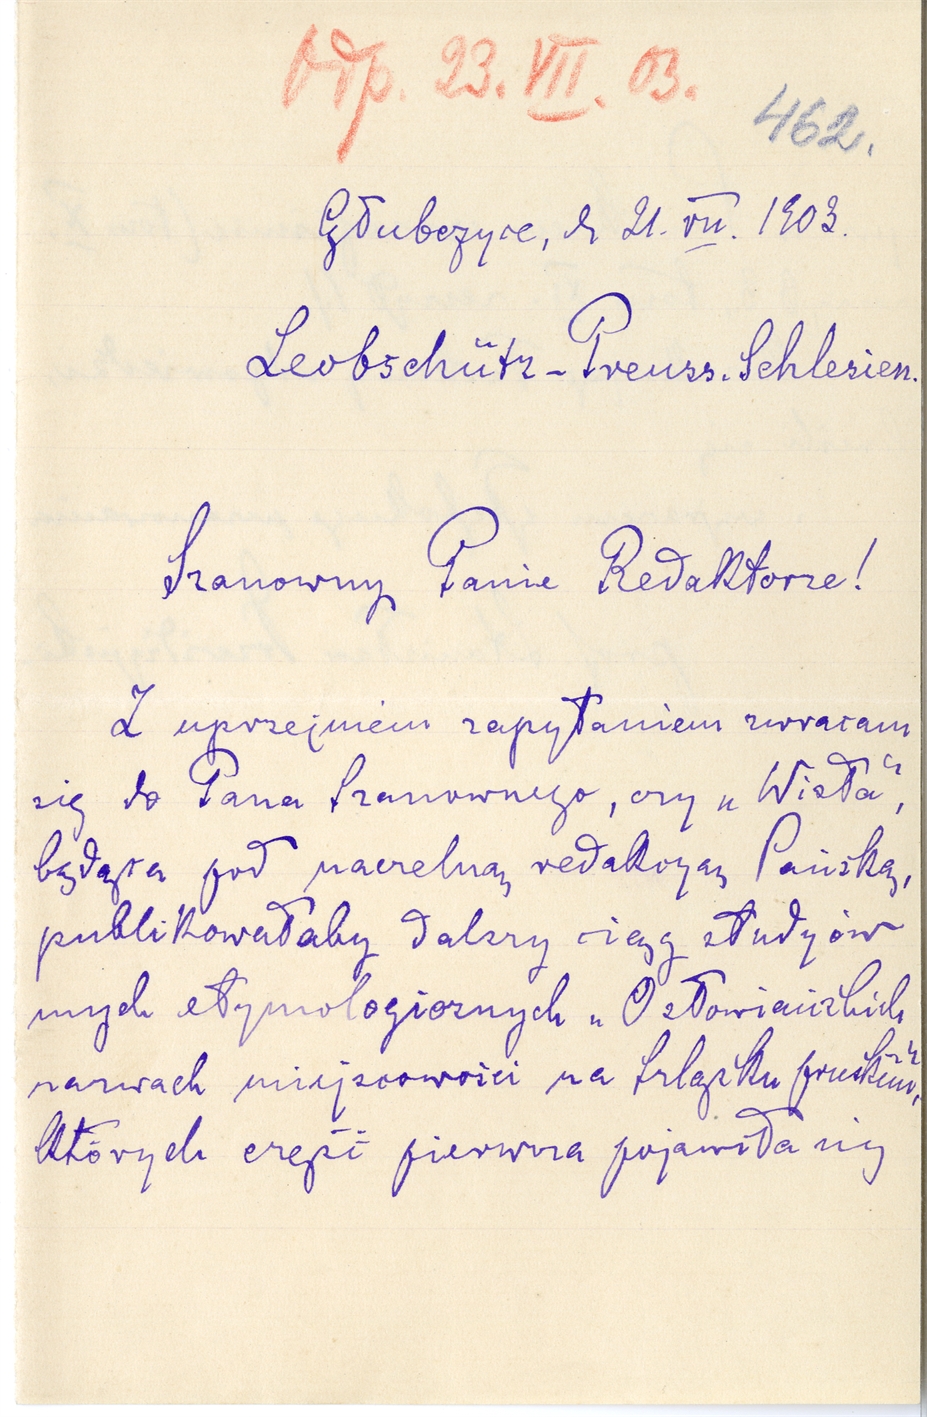 Odp. 23. VII. 03.
462.
Głubczyce, d. 21. VII. 1903.
Leobschütz - Preuss. Schlesien.
Szanowny Panie Redaktorze!
Z uprzejmém zapytaniem zwracam
się do Pana Szanownego, czy „Wisła“,
będąca pod naczelną redakcyą Pańską,
publikowałaby dalszy ciąg studyów
mych etymologicznych „O słowiańskich
nazwach miejscowości na Szląsku pruskim“,
których część pierwsza pojawiła się